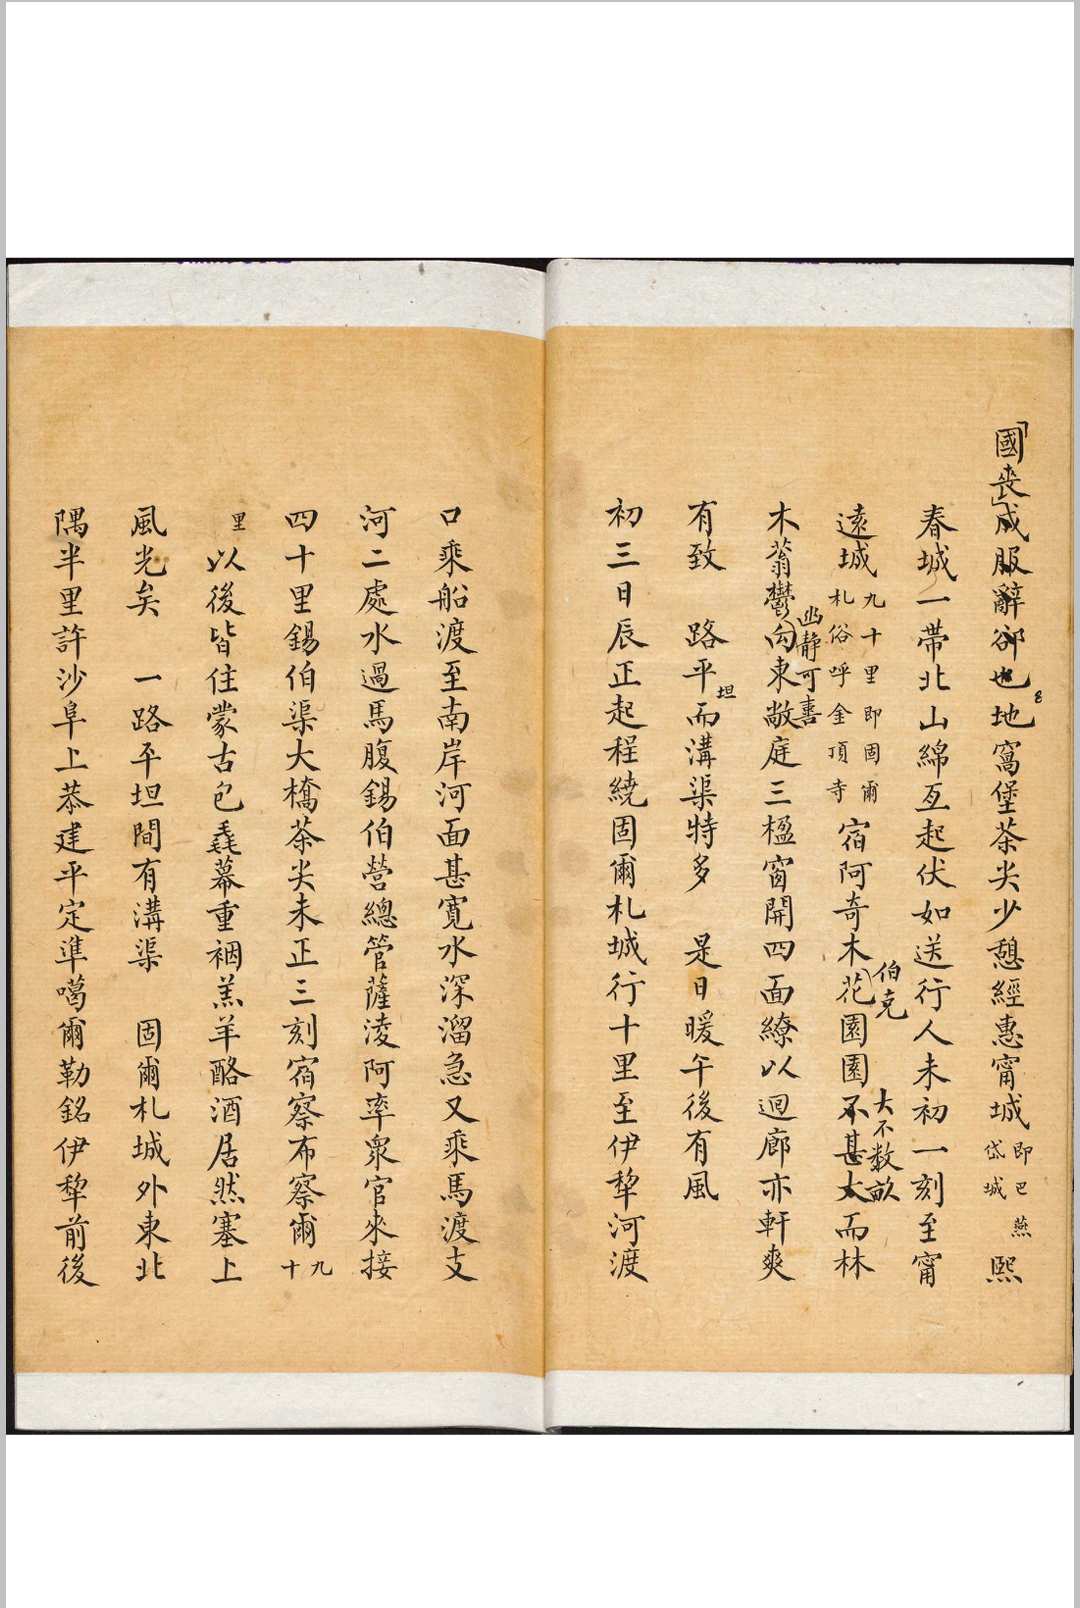 國喪成服辭卻也地窩堡茶尖少憩經惠甯城即巴燕岱城熙
春城一帶北山綿亙起伏如送行人未初一刻至甯
遠城九十里即固爾札俗呼金頂寺宿阿奇木伯克花園園不甚大大不數畝而林
木蓊鬱幽靜可喜向東敞庭三楹窗開四面繚以迴廊亦軒爽
有致　路平坦而溝渠特多　是日暖午後有風
初三日辰正起程繞固爾札城行十里至伊犂河渡
口乘船渡至南岸河面甚寬水深溜急又乘馬渡支
河二處水過馬腹錫伯營總管薩淩阿率衆官來接
四十里錫伯渠大橋茶尖未正三刻宿察布察爾九十
里以後皆住蒙古包毳幕重裀羔羊酪酒居然塞上
風光矣　一路平坦間有溝渠　固爾札城外東北
隅半里許沙阜上恭建平定準噶爾勒銘伊犂前後